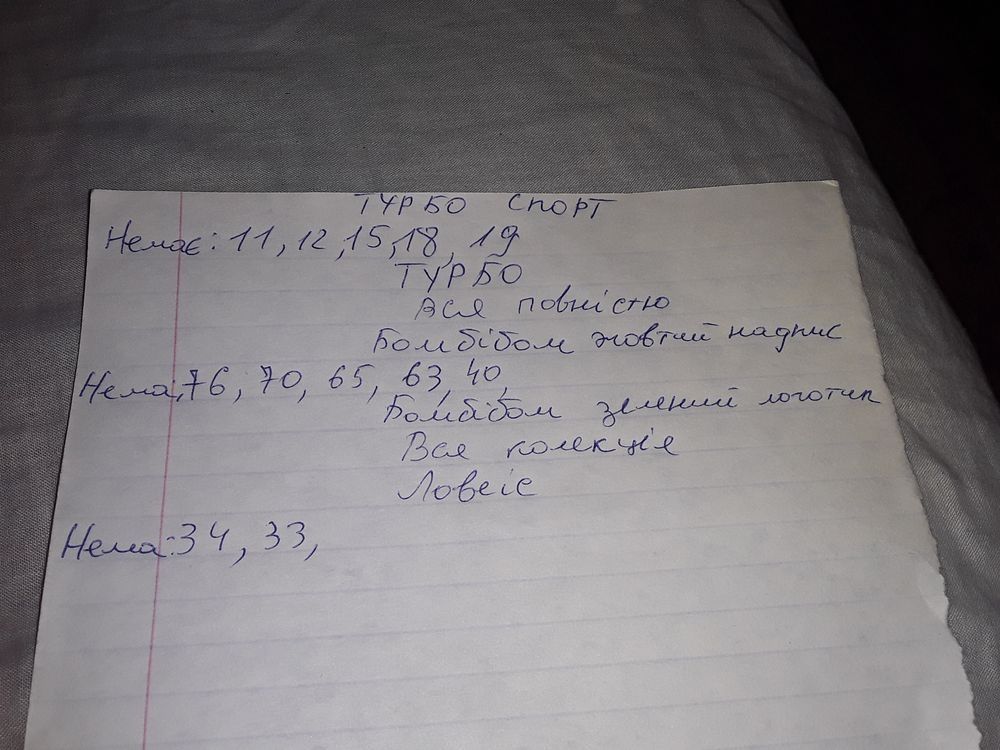 ТУРБО СПОРТ
Немає: 11, 12, 15, 18, 19
ТУРБО
Вся повністю
Бомбібом жовтий надпис
Нема: 76, 70, 65, 63, 40,
Бомбібом зелений логотип
Вся колекція
Ловеіс
Нема: 34, 33,